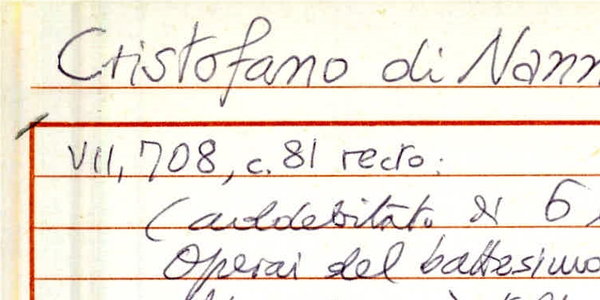 Cristofano di Nann
VII, 708, c. 81 recto:
(addebitato di 6
Operai del battesimo